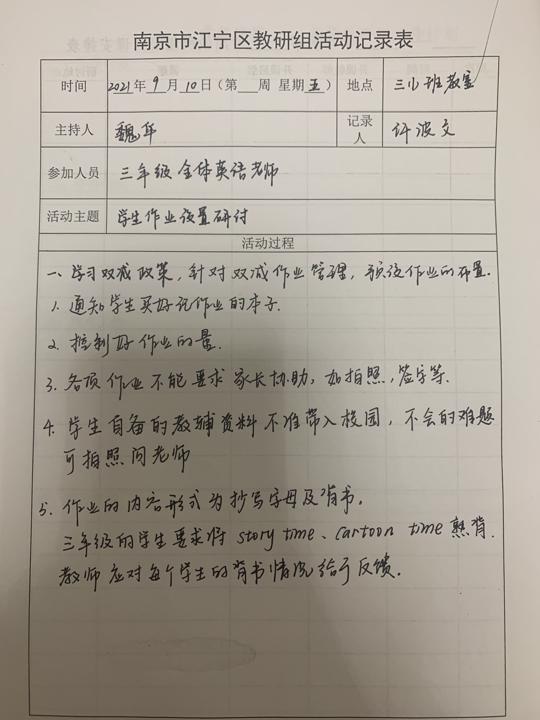 南京市江宁区教研组活动记录表
时间 2021年9月10日(第 周 星期五) 地点 三(1)班教室
主持人 魏华 记录人 许波文
参加人员 三年级全体英语老师
活动主题 学生作业设置研讨
活动过程
一、学习双减政策,针对双减作业管理,预设作业的布置.
1. 通知学生买好记作业的本子.
2. 控制好作业的量.
3. 各项作业不能要求家长协助,如拍照,签字等.
4. 学生自备的教辅资料不准带入校园,不会的难题
可拍照问老师
5. 作业的内容形式为抄写字母及背书.
三年级的学生要求将 story time、cartoon time 熟背.
教师应对每个学生的背书情况给予反馈.